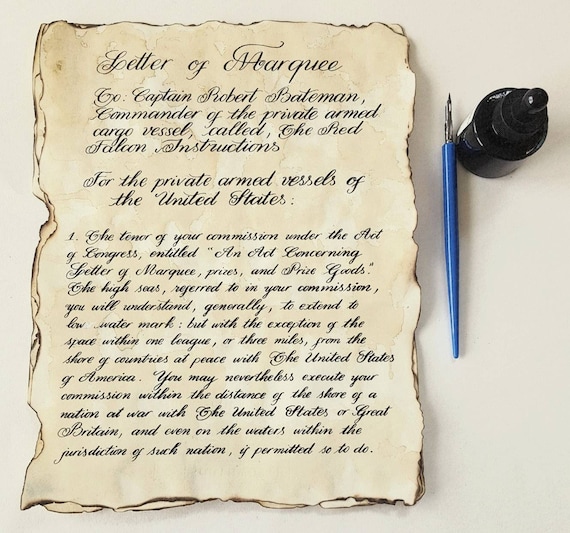 Letter of Marquee
To: Captain Robert Bateman,
Commander of the private armed
cargo vessel, called, The Red
Falcon Instructions
For the private armed vessels of
the United States:
1. The tenor of your commission under the Act
of Congress, entitled "An Act Concerning
Letter of Marquee, prizes, and Prize Goods."
The high seas, referred to in your commission,
you will understand, generally, to extend to
low water mark: but with the exception of the
space within one league, or three miles, from the
shore of countries at peace with The United States
of America. You may nevertheless execute your
commission within the distance of the shore of a
nation at war with The United States or Great
Britain, and even on the waters within the
jurisdiction of such nation, if permitted so to do.